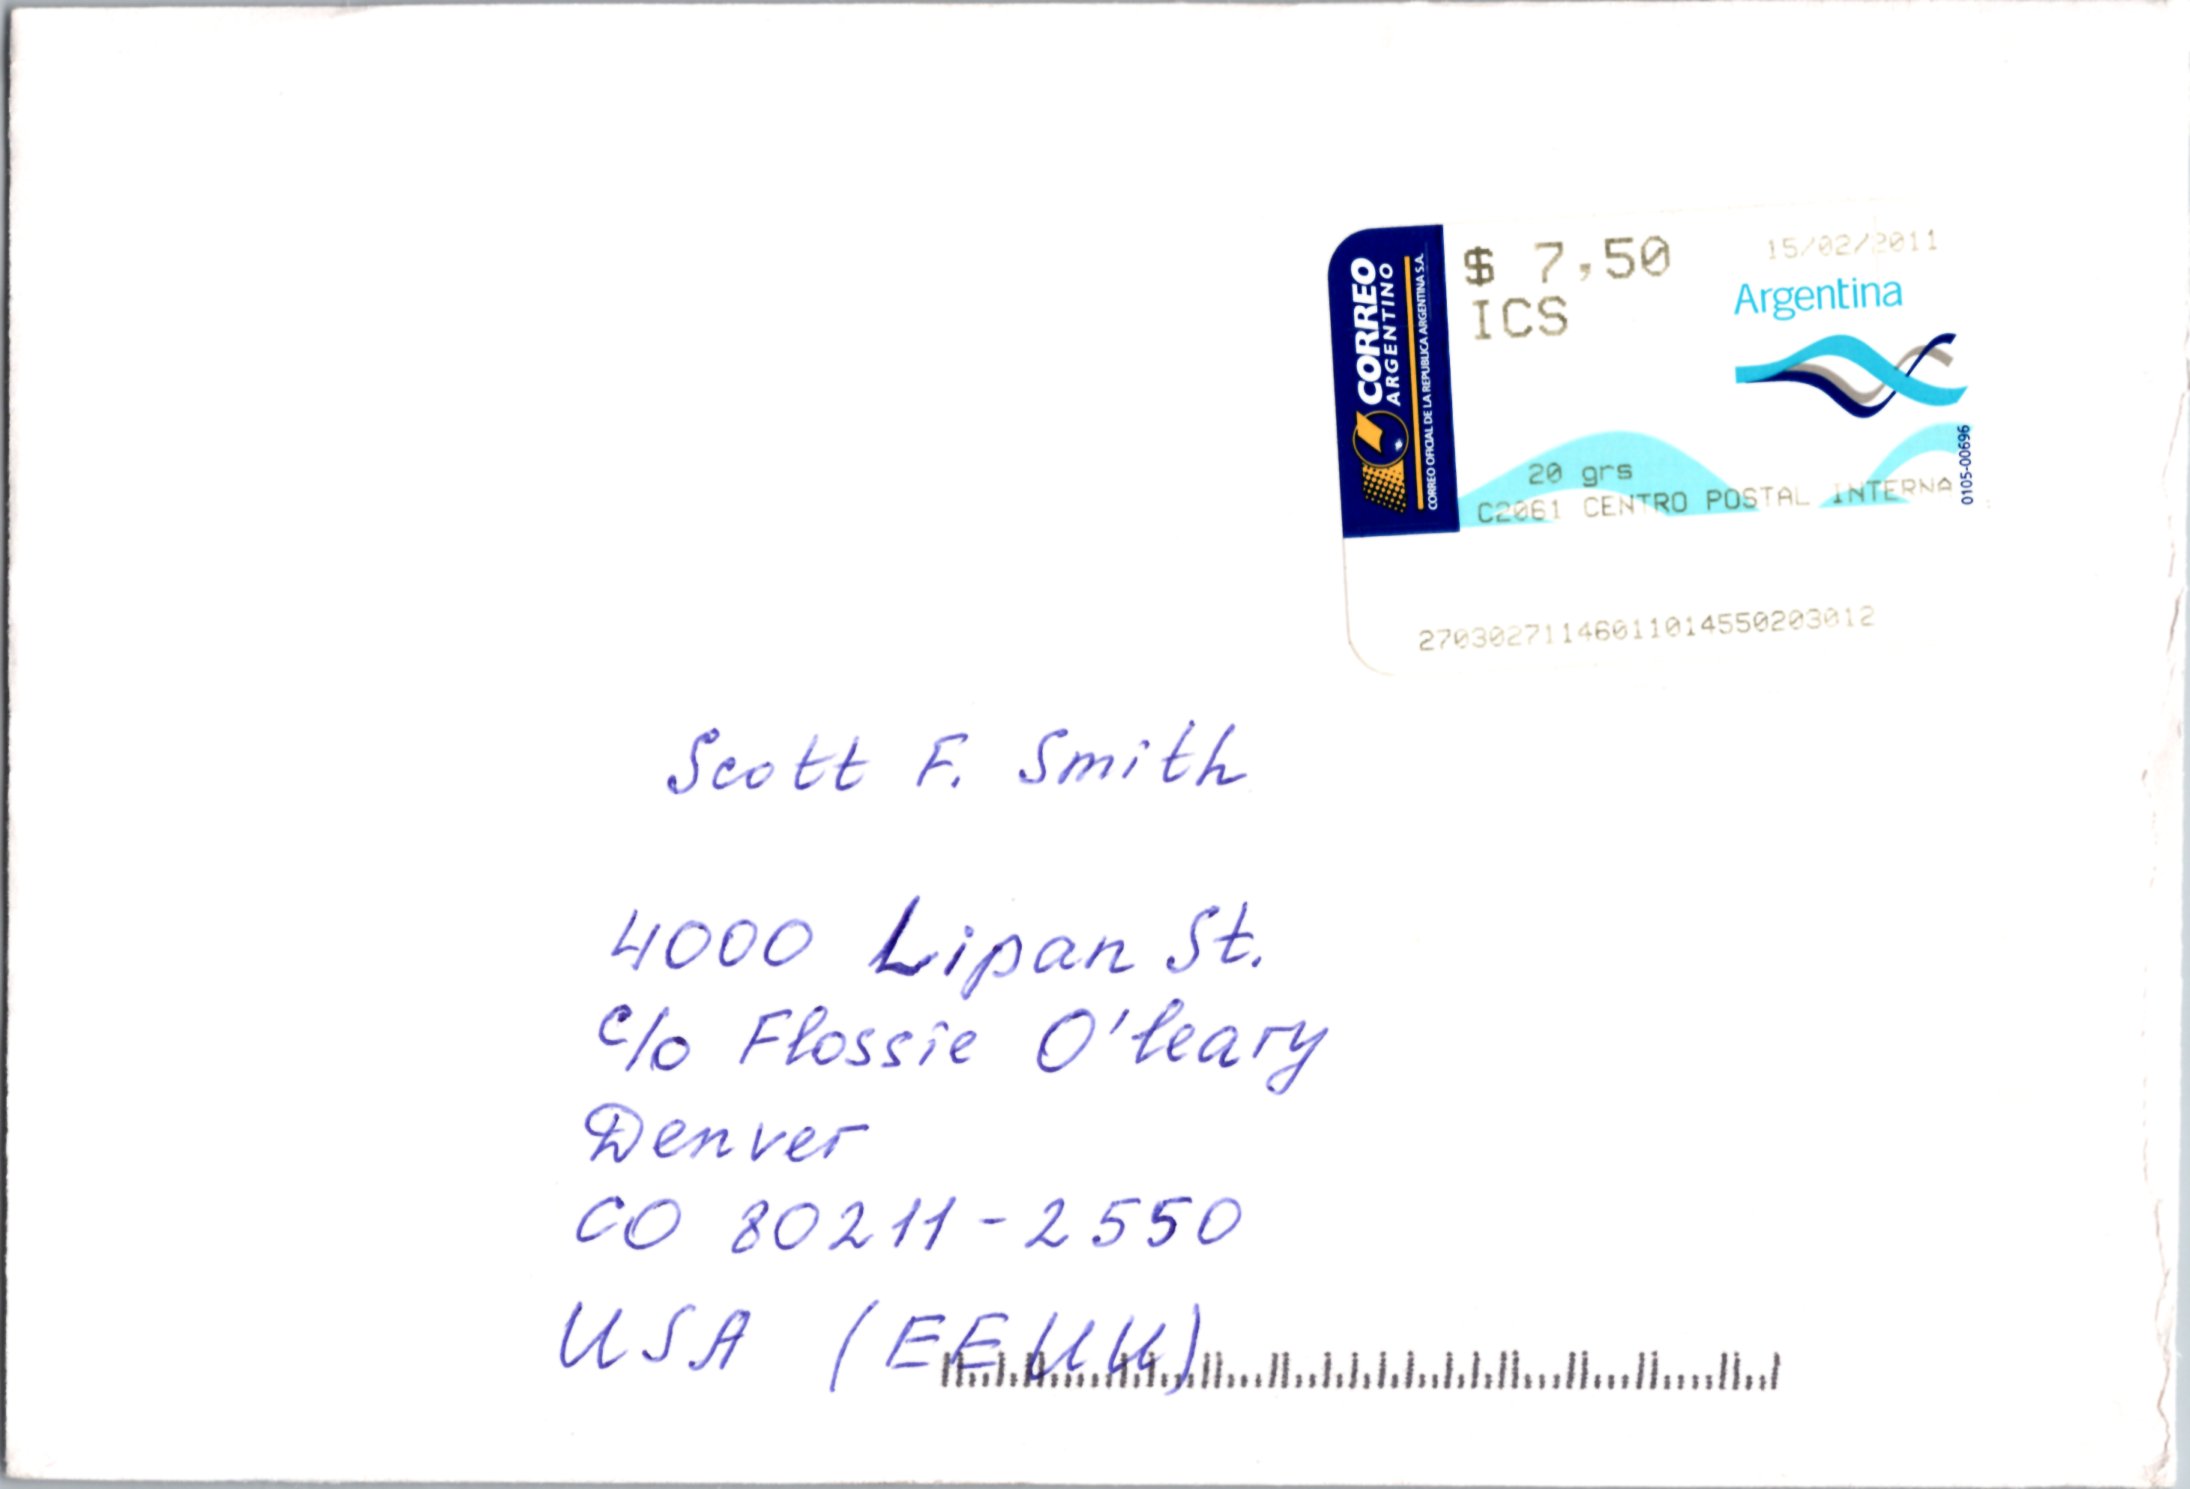 CORREO
ARGENTINO
CORREO OFICIAL DE LA REPUBLICA ARGENTINA S.A.
$ 7,50
ICS
15/02/2011
Argentina
20 grs
C2061 CENTRO POSTAL INTERNA
0105-00696
27030271146011014550203012
Scott F. Smith
4000 Lipan St.
c/o Flossie O'leary
Denver
CO 80211-2550
USA (EEUU)